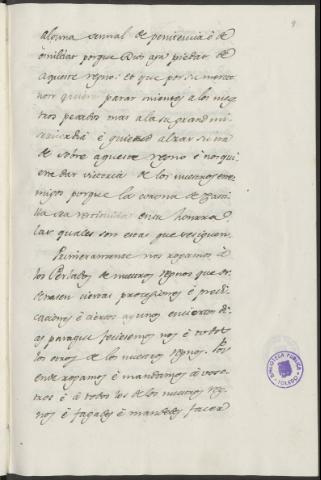 9
alguna sennal de penitencia é de
omildat porque Dios aya piedat de
aqueste regno: et que por su merce
non quiera parar mientes a los nues
tros pecados mas a la su grand mi
sericordia é quiera alzar su ira
de sobre aqueste regno é nos qui
era dar victoria de los nuestros ene
migos porque la corona de Casti
lla sea restituida en su honrra
las quales son estas que se siguen.
Primeramente nos rogamos á
los Perlados de nuestros regnos que or
denasen ciertas procesiones é predi
caciones é ciertos ayunos en ciertos di
as para que ficiesemos nos é todos
los otros de los nuestros regnos. Por
ende rogamos é mandamos á voso
tros é á todos los de los nuestros reg
nos é fagades é mandedes facer
BIBLIOTECA PUBLICA
TOLEDO